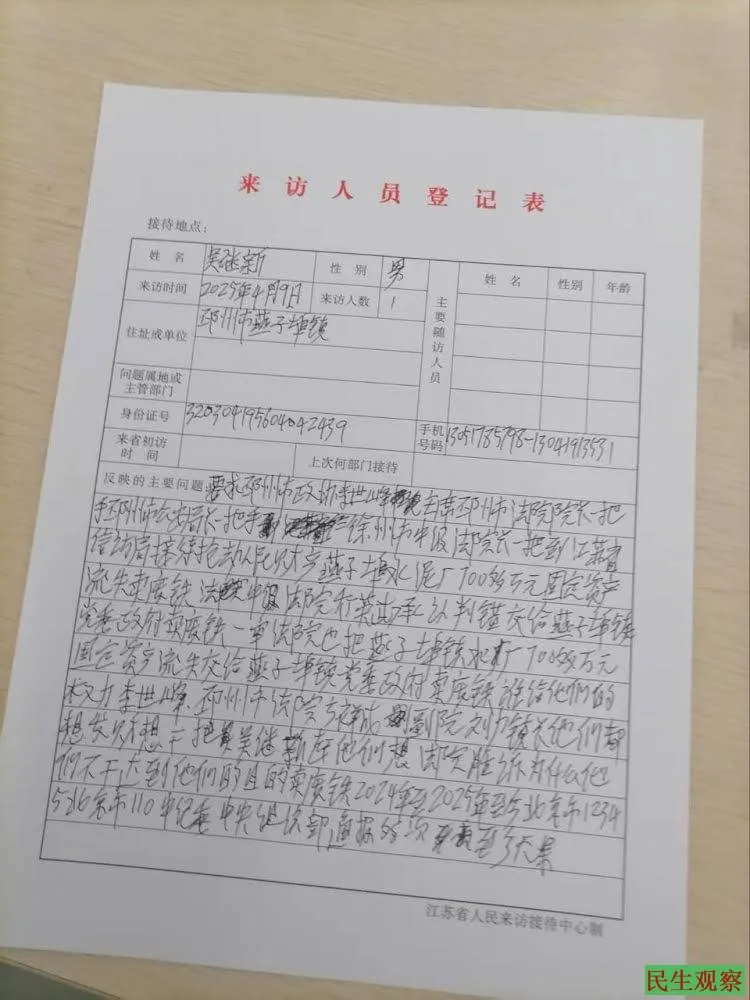 来访人员登记表
接待地点：
姓名 吴继新 性别 男 主要随访人员 姓名 性别 年龄
来访时间 2025年4月9日 来访人数 1
住址或单位 邳州市燕子埠镇
问题属地或主管部门
身份证号 320304195604042439 手机号码 13051785798-13041913531
来省初访时间 上次何部门接待
反映的主要问题 要求邳州市政协李世峰 主席邳州市法院院长一把
手邳州市公安局长一把手 徐州市中级法院长一把手江苏省
信访局 人民财产燕子埠水泥厂700多万元固定资产
流失卖废铁 法院中级法院 承认判错交给燕子埠镇
党委政府卖废铁一审法院也把燕子埠镇水厂700多万元
固定资产流失交给燕子埠镇党委政府卖废铁谁给他们的
权力李世峰 邳州市法院 院刘力镇长他们都
想发财想 把 吴继新 他们想法院 为什么他
们不干达到他们的目的卖废铁2024年至2025年至今北京市1234
5北京市110中纪委中央组织部 至今无果
江苏省人民来访接待中心制
民生观察